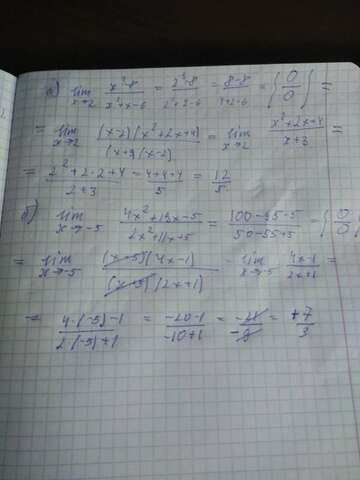 а) lim x→2 (x³-8)/(x²+x-6) = (2³-8)/(2²+2-6) = (8-8)/(4+2-6) = {0/0} =
= lim x→2 (x-2)(x²+2x+4)/(x+3)(x-2) = lim x→2 (x²+2x+4)/(x+3) =
= (2²+2·2+4)/(2+3) = (4+4+4)/5 = 12/5
б) lim x→-5 (4x²+19x-5)/(2x²+11x+5) = (100-95-5)/(50-55+5) = {0/0}
= lim x→-5 (x+5)(4x-1)/(x+5)(2x+1) = lim x→-5 (4x-1)/(2x+1) =
= (4·(-5)-1)/(2·(-5)+1) = (-20-1)/(-10+1) = -21/-9 = +7/3